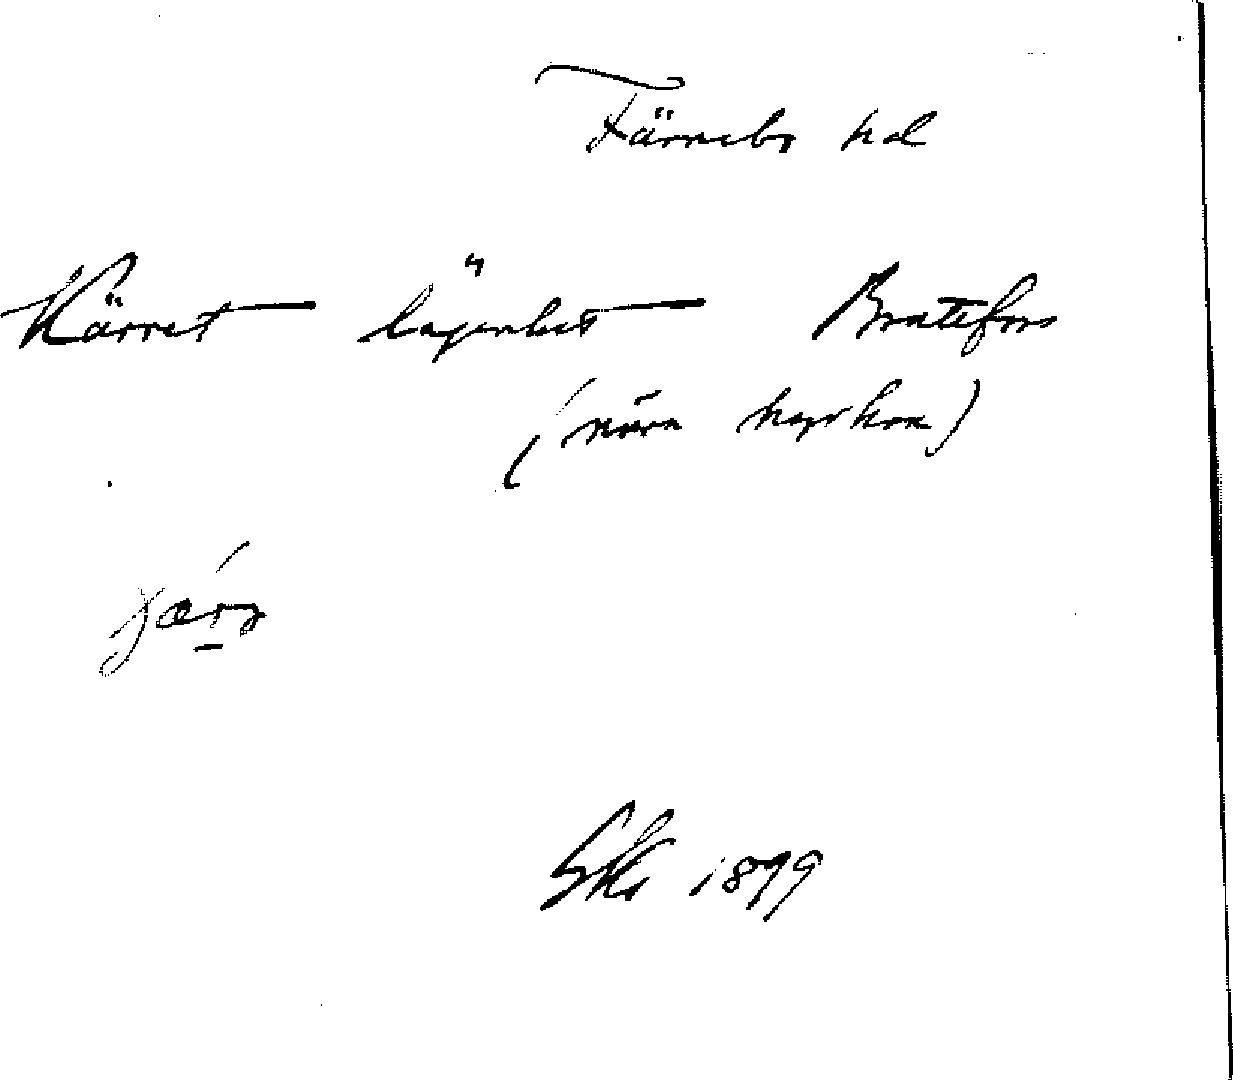 Färnebo hd
Kärret lägenhet Brattfors
(nära kyrkan)
Ski 1899